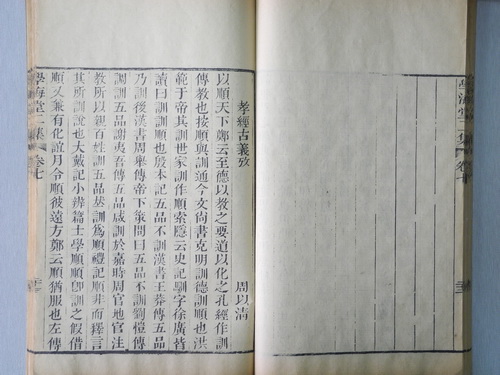 學海堂二集 卷七
孝經古義攷 周以清
以順天下鄭云至德以教之要道以化之孔經作訓
傳教也按順與訓通今文尚書克明訓德訓順也洪
範于帝其訓世家訓作順索隱云史記馴字徐廣皆
讀曰訓訓順也殷本記五品不訓漢書王莽傳五品
乃訓後漢書周舉傳帝下策問曰五品不訓劉愷傳
調訓五品謝夷吾傳五品咸訓於嘉時周官地官注
教所以親百姓訓五品基訓爲順禮記順非而釋言
其所訓說也大戴記小辨篇士學順順即訓之叚借
順又兼有化誼月令順彼遠方鄭云順猶服也左傳
學海堂二集 卷七